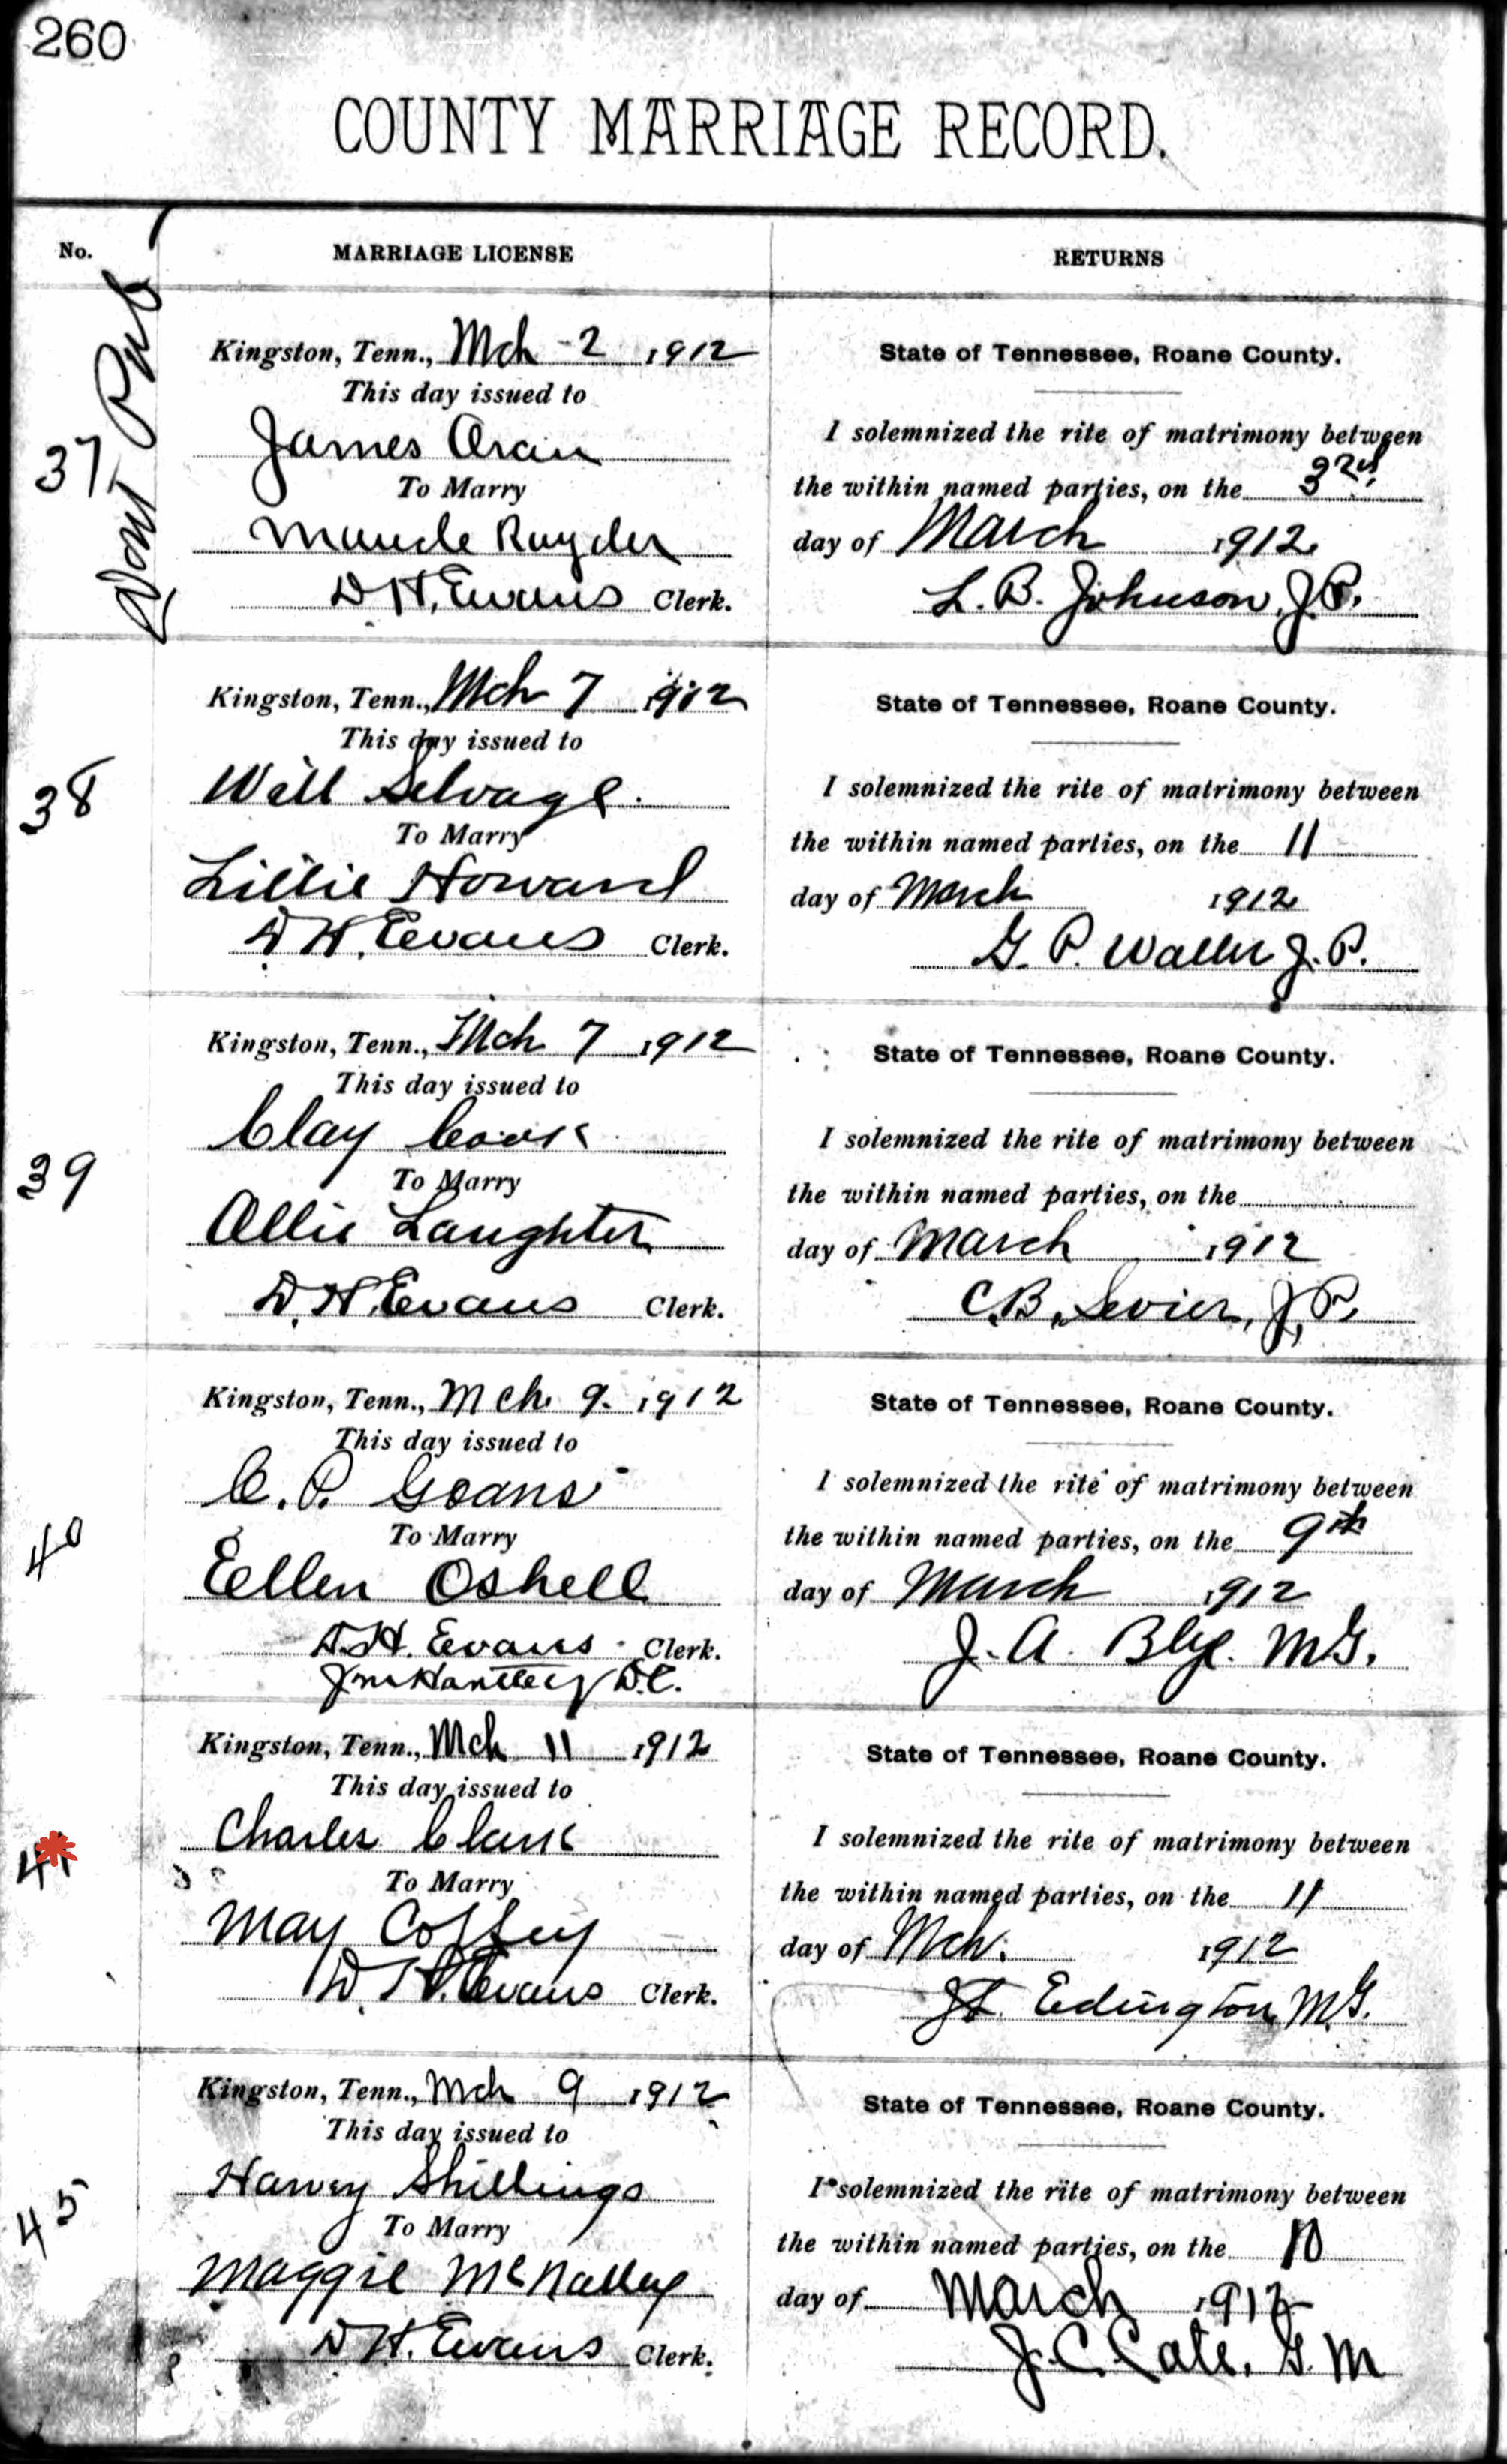 260
COUNTY MARRIAGE RECORD.
No.
MARRIAGE LICENSE
RETURNS
Dont Pub
37
Kingston, Tenn., Mch 2 1912
This day issued to
James Oran
To Marry
Maude Rayder
D. H. Evans Clerk.
State of Tennessee, Roane County.
I solemnized the rite of matrimony between
the within named parties, on the 3rd
day of March 1912
L. B. Johnson, J.P.
38
Kingston, Tenn., Mch 7 1912
This day issued to
Will Selvage
To Marry
Lillie Howard
D. H. Evans Clerk.
State of Tennessee, Roane County.
I solemnized the rite of matrimony between
the within named parties, on the 11
day of March 1912
G. P. Waller J. P.
39
Kingston, Tenn., Mch 7 1912
This day issued to
Clay Cook
To Marry
Allie Laughter
D. H. Evans Clerk.
State of Tennessee, Roane County.
I solemnized the rite of matrimony between
the within named parties, on the
day of March 1912
C. B. Sevier, J. P.
40
Kingston, Tenn., Mch. 9. 1912
This day issued to
C. P. Goans
To Marry
Eellen Oshell
D. H. Evans Clerk.
D.C.
State of Tennessee, Roane County.
I solemnized the rite of matrimony between
the within named parties, on the 9th
day of March 1912
J. A. Blye. M.G.
41
Kingston, Tenn., Mch 11 1912
This day issued to
Charles Clark
To Marry
May Coffey
D. H. Evans Clerk.
State of Tennessee, Roane County.
I solemnized the rite of matrimony between
the within named parties, on the 11
day of Mch. 1912
Edington M.G.
45
Kingston, Tenn., Mch 9 1912
This day issued to
Harvey Shillings
To Marry
Maggie McNalley
D. H. Evans Clerk.
State of Tennessee, Roane County.
I solemnized the rite of matrimony between
the within named parties, on the 10
day of March 1912
J. C. Cate, G. M